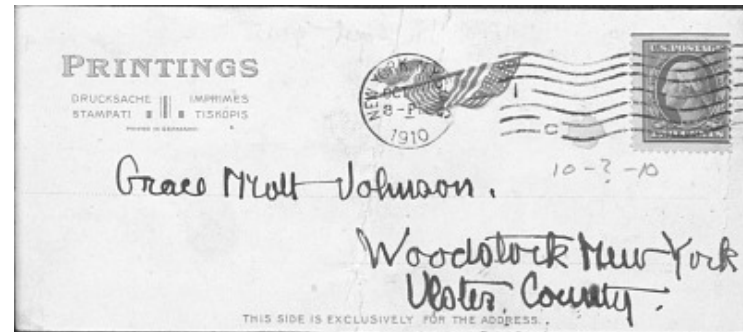 PRINTINGS
DRUCKSACHE IMPRIMES
STAMPATI TISKOPIS
PRINTED IN GERMANY
NEW YORK, N.Y.
OCT
8-PM
1910
U.S. POSTAGE
10-?-10
Grace Mott Johnson.
Woodstock New York
Ulster County.
THIS SIDE IS EXCLUSIVELY FOR THE ADDRESS.